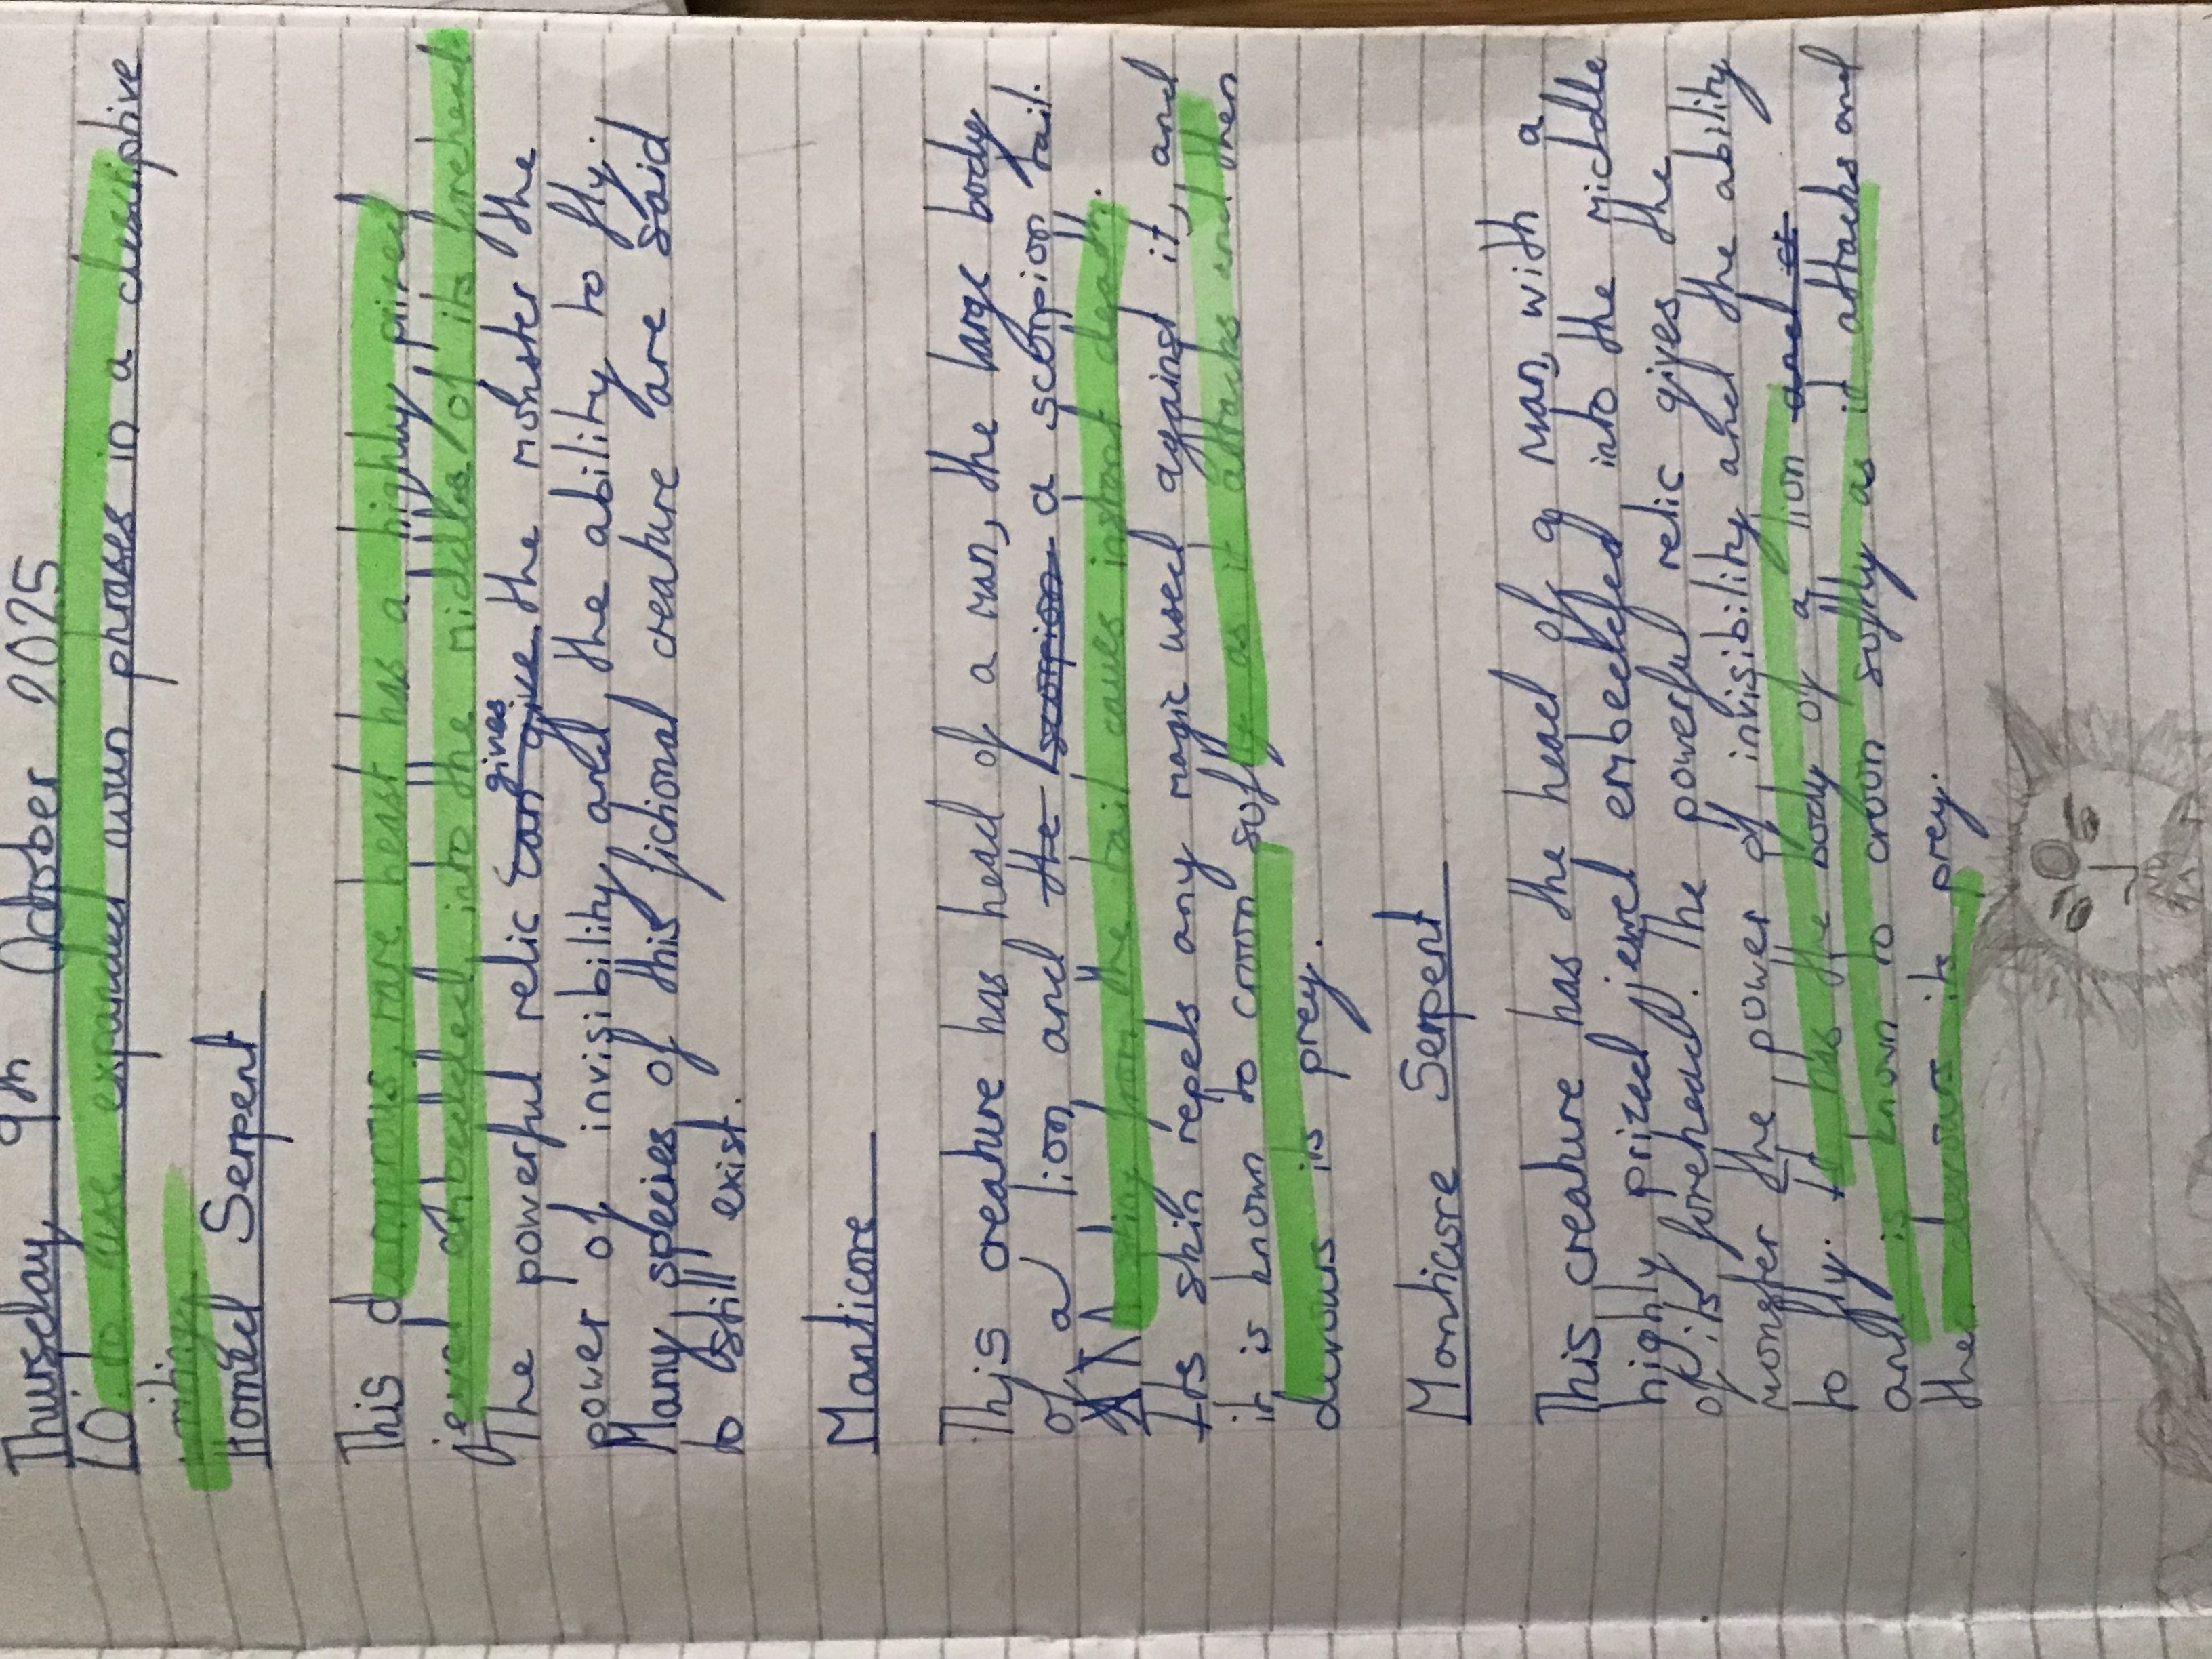 Thursday 9th October 2025
LO: to use expanded noun phrases in a descriptive
writing
Horned Serpent
This dangerous, rare beast has a highly pirzed
jewel embedded into the middle of its forehead.
The powerful relic can give gives the monster the
power of invisibility and the ability to fly.
Many species of this fichional creature are said
to still exist.
Manticore
This creature has head of a man, the large body
of a lion and the scorpion a scorpion tail.
A sting from the tail caues instant death.
Its skin repels any magic used against it, and
it is known to croon softly as it attacks and then
devours its prey.
Monticore Serpent
This creature has the head of a man, with a
highly prized jewel embedded into the middle
of its forehead. The powerful relic gives the
monster the power of invisibility and the ability
to fly. It has the body of a lion and it
and is known to croon softly as it attacks and
then devours its prey.